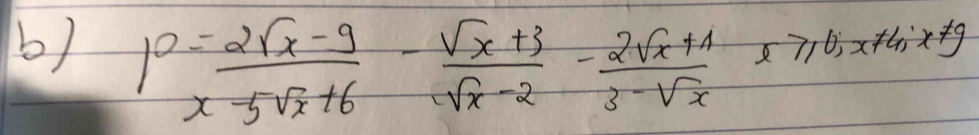 b) P = \frac{2\sqrt{x} - 9}{x - 5\sqrt{x} + 6} - \frac{\sqrt{x} + 3}{\sqrt{x} - 2} - \frac{2\sqrt{x} + 1}{3 - \sqrt{x}} x ≥ 0; x ≠ 4; x ≠ 9